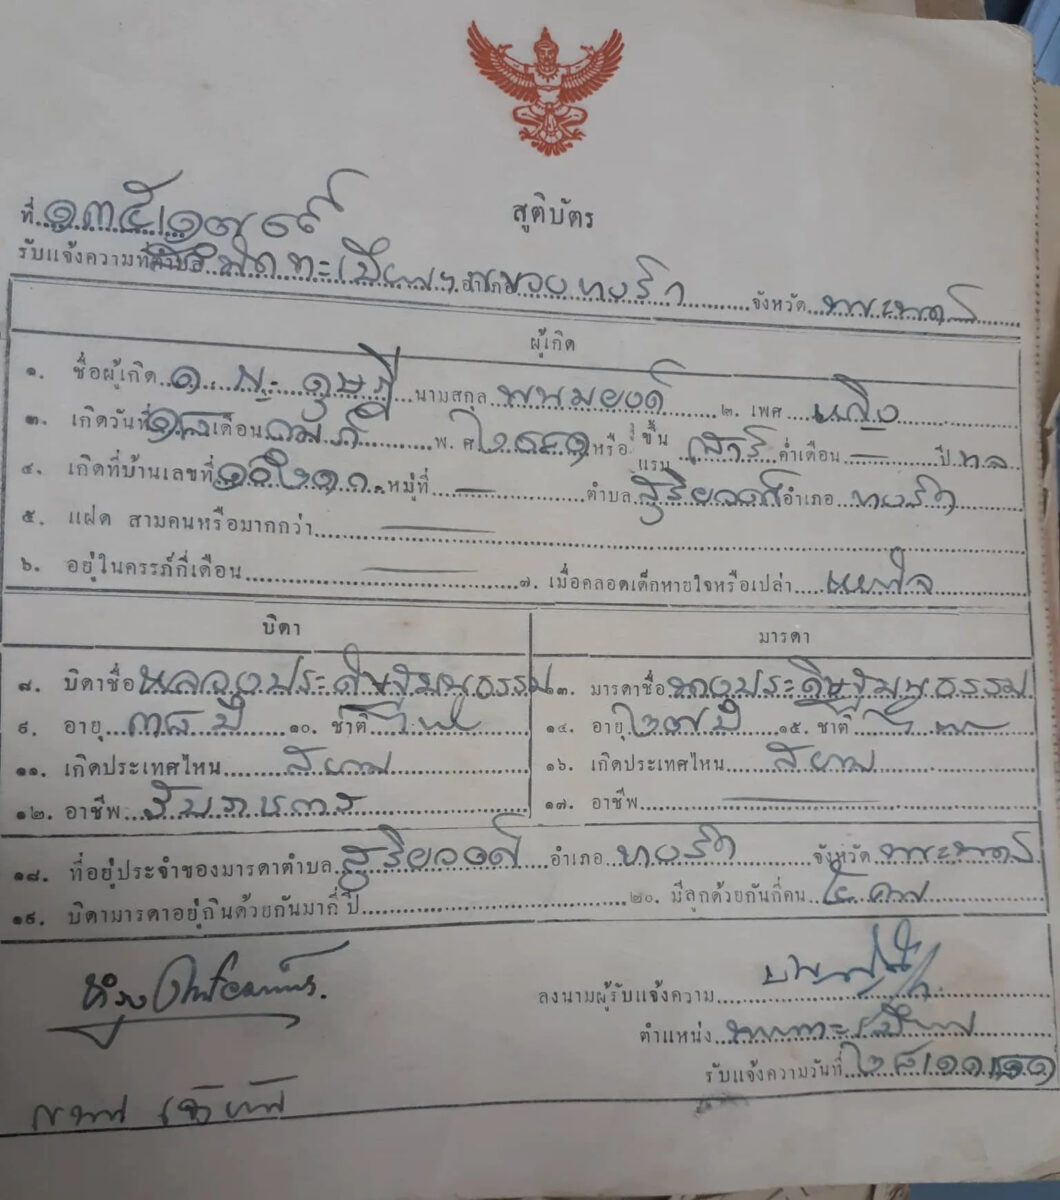 สูติบัตร
ที่
รับแจ้งความที่ จังหวัด พระนคร
ผู้เกิด
๑. ชื่อผู้เกิด ด.ญ. ดุษฎี นามสกุล พนมยงค์ ๒. เพศ หญิง
๓. เกิดวันที่ เดือน พ. ศ. หรือ ขึ้น แรม ค่ำเดือน — ปี
๔. เกิดที่บ้านเลขที่ หมู่ที่ — ตำบล สุริยวงศ์ อำเภอ บางรัก
๕. แฝด สามคนหรือมากกว่า —
๖. อยู่ในครรภ์กี่เดือน — ๗. เมื่อคลอดเด็กหายใจหรือเปล่า หายใจ
บิดา มารดา
๘. บิดาชื่อ หลวงประดิษฐ์มนูธรรม ๑๓. มารดาชื่อ นางประดิษฐ์มนูธรรม
๙. อายุ ๓๘ ปี ๑๐. ชาติ ไทย ๑๔. อายุ ๒๗ ปี ๑๕. ชาติ ไทย
๑๑. เกิดประเทศไหน สยาม ๑๖. เกิดประเทศไหน สยาม
๑๒. อาชีพ รับราชการ ๑๗. อาชีพ —
๑๘. ที่อยู่ประจำของมารดาตำบล สุริยวงศ์ อำเภอ บางรัก จังหวัด พระนคร
๑๙. บิดามารดาอยู่กินด้วยกันมากี่ปี ๒๐. มีลูกด้วยกันกี่คน ๕ คน
ลงนามผู้รับแจ้งความ
ตำแหน่ง นายทะเบียน
รับแจ้งความวันที่